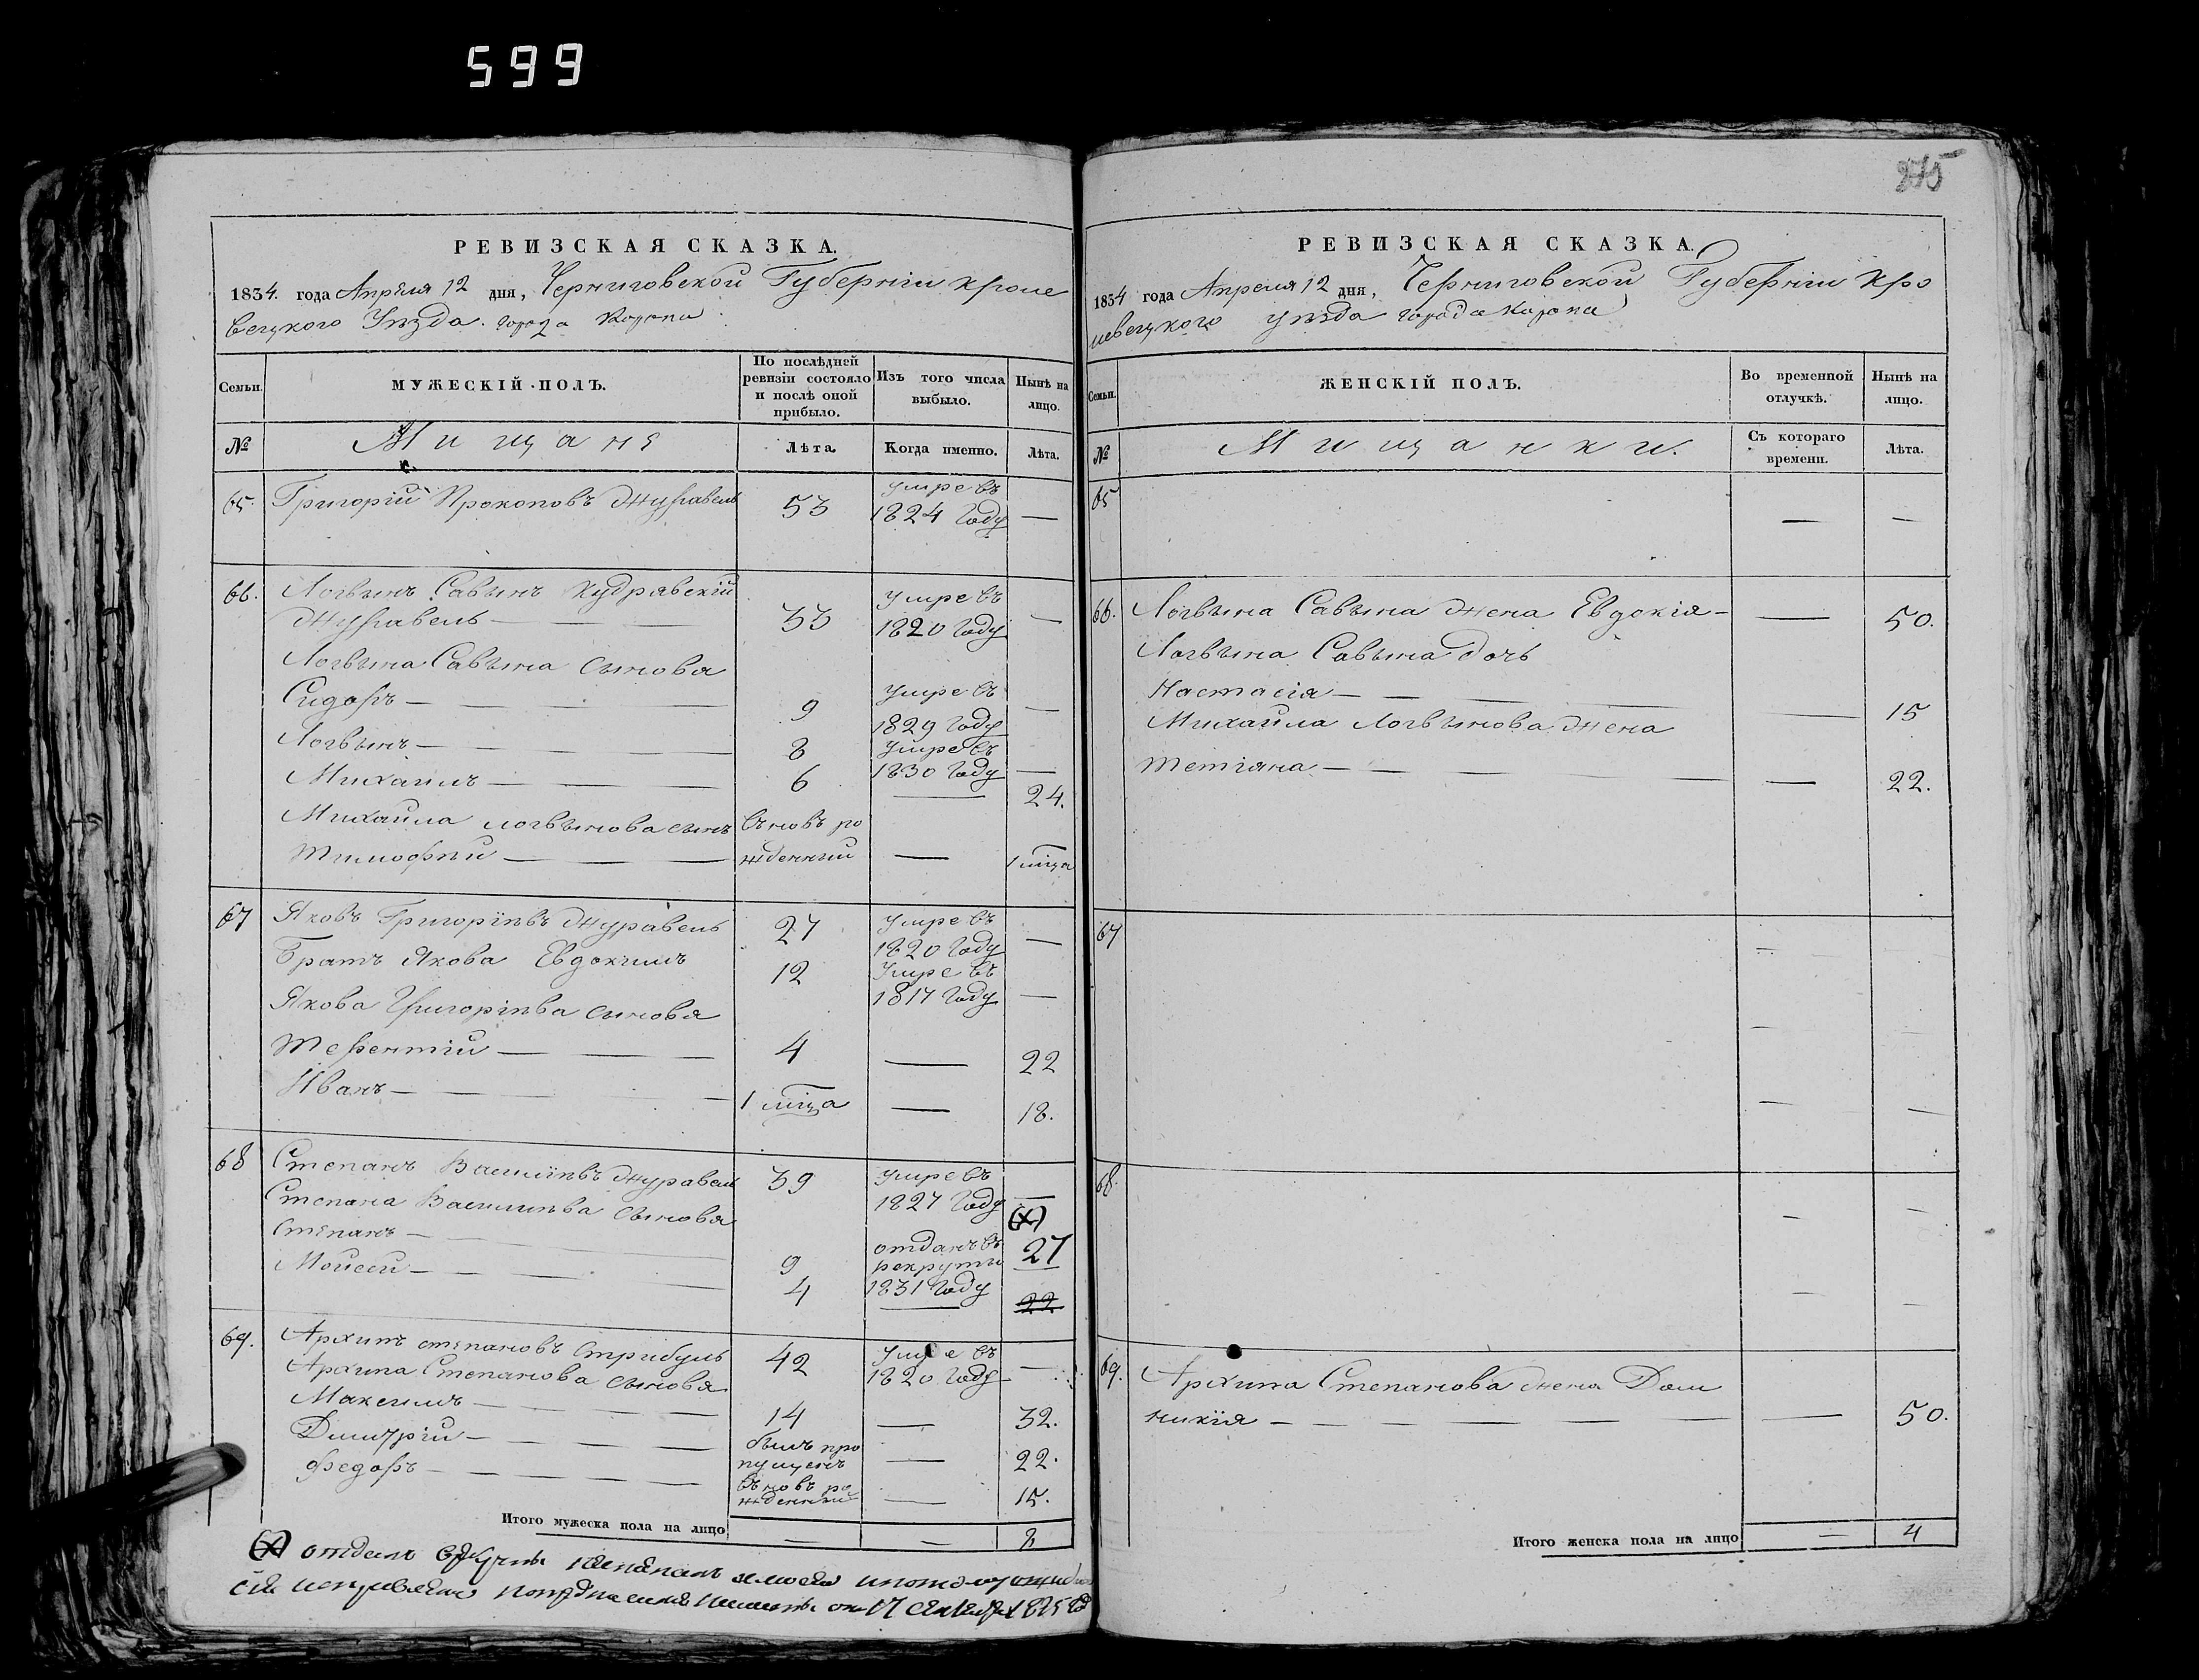 599
275
РЕВИЗСКАЯ СКАЗКА.
1834. года Апрѣля 12 дня, Черниговской Губернiи Кроле
вецкого Уѣзда. города Коропа
Семьи.
МУЖЕСКIЙ ПОЛЪ.
По послѣдней ревизiи состояло и послѣ оной прибыло.
Изъ того числа выбыло.
Нынѣ на лицо.
№
Мищаня
Лѣта.
Когда именно.
Лѣта.
65. Григорiй Прокоповъ Журавель 53 умре въ
1824 Году —
66. Логвынъ Савынъ Кудрявскiй
Журавель — 33 умре въ
1820 Году —
Логвына Савына сыновя
Сидоръ — 9 умре въ
1829 Году —
Логвынъ — 8 умре въ
1830 Году —
Михаилъ — 6 — 24.
Михайла Логвынова сынъ вновъ ро
Тимофѣй — жденный — 1 мѣца
67 Яковъ Григорiевъ Журавель 27 умре въ
1820 Году —
Братъ Якова Евдокимъ 12 умре въ
1817 Году —
Якова Григорiева сыновя
Терентiй — 4 — 22
Иванъ — 1 мѣца — 18.
68 Степанъ Василiевъ Журавель 39 умре въ
1827 Году —
Степана Василиева сыновя (х)
Степанъ — 9 отданъ въ
рекруты
1831 Году 27
Мойсей — 4 — 22
69. Архипъ Степановъ Стрибуль 42 умре въ
1820 Году —
Архипа Степанова сыновя
Максимъ — 14 — 32.
Димитрiй — былъ про
пущенъ — 22.
Федоръ — вновъ ро
жденный — 15.
Итого мужеска пола на лицо — — 8
(х) отданъ
17 Сентября
РЕВИЗСКАЯ СКАЗКА.
1834 года Апреля 12 дня, Черниговской Губернiи Кро
левецкого уѣзда города Коропа
Семьи.
ЖЕНСКIЙ ПОЛЪ.
Во временной отлучкѣ.
Нынѣ на лицо.
№
Мищанки.
Съ котораго времени.
Лѣта.
65 — —
66. Логвына Савына жена Евдокiя — — 50.
Логвына Савына дочь
Настасiя — — 15
Михайла Логвынова жена
Тетiяна — — 22.
67 — —
— —
— —
68. — —
— —
69. Архипа Степанова жена Дом
никiя — — 50.
Итого женска пола на лицо — 4